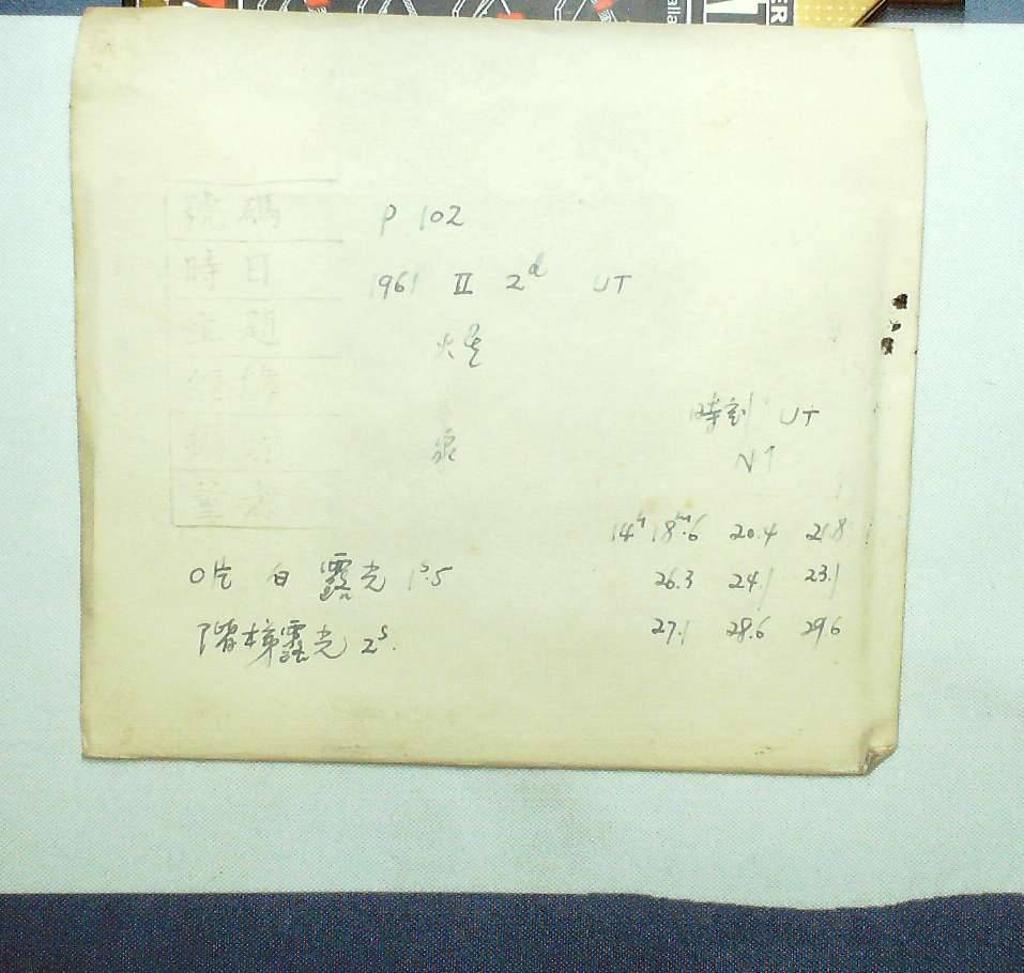 號碼 P 102
時日 1961 II 2d UT
火星
時刻 UT
N↑
14h 18m.6 20.4 21.8
26.3 24.1 23.1
27.1 28.6 29.6
O片 白 露光 1s.5
階梯露光 2s.